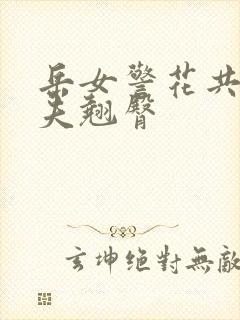 岳女警花共
夫翘臀
玄坤絕對無敵